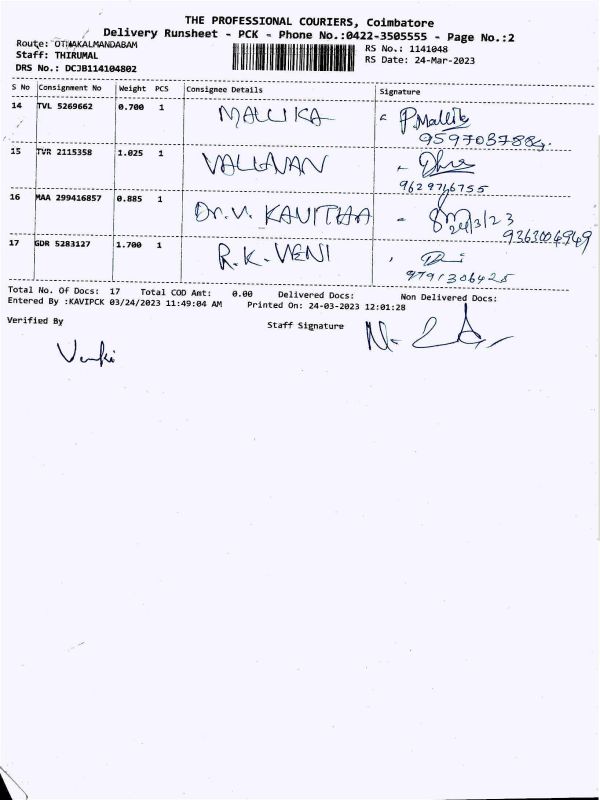 THE PROFESSIONAL COURIERS, Coimbatore
Delivery Runsheet - PCK - Phone No.:0422-3505555 - Page No.:2
Route: OTHAKALMANDABAM
RS No.: 1141048
Staff: THIRUMAL
RS Date: 24-Mar-2023
DRS No.: DCJB114104802
S No Consignment No Weight PCS Consignee Details Signature
14 TVL 5269662 0.700 1 MALLIKA P.Mallik
9597037884.
15 TVR 2115358 1.025 1 VALLAVAN
9629746755
16 MAA 299416857 0.885 1 Dr.V. KAVITHAA
24/3/23
9363004949
17 GDR 5283127 1.700 1 R.K.VENI
9791306425
Total No. Of Docs: 17 Total COD Amt: 0.00 Delivered Docs: Non Delivered Docs:
Entered By :KAVIPCK 03/24/2023 11:49:04 AM Printed On: 24-03-2023 12:01:28
Verified By
Staff Signature